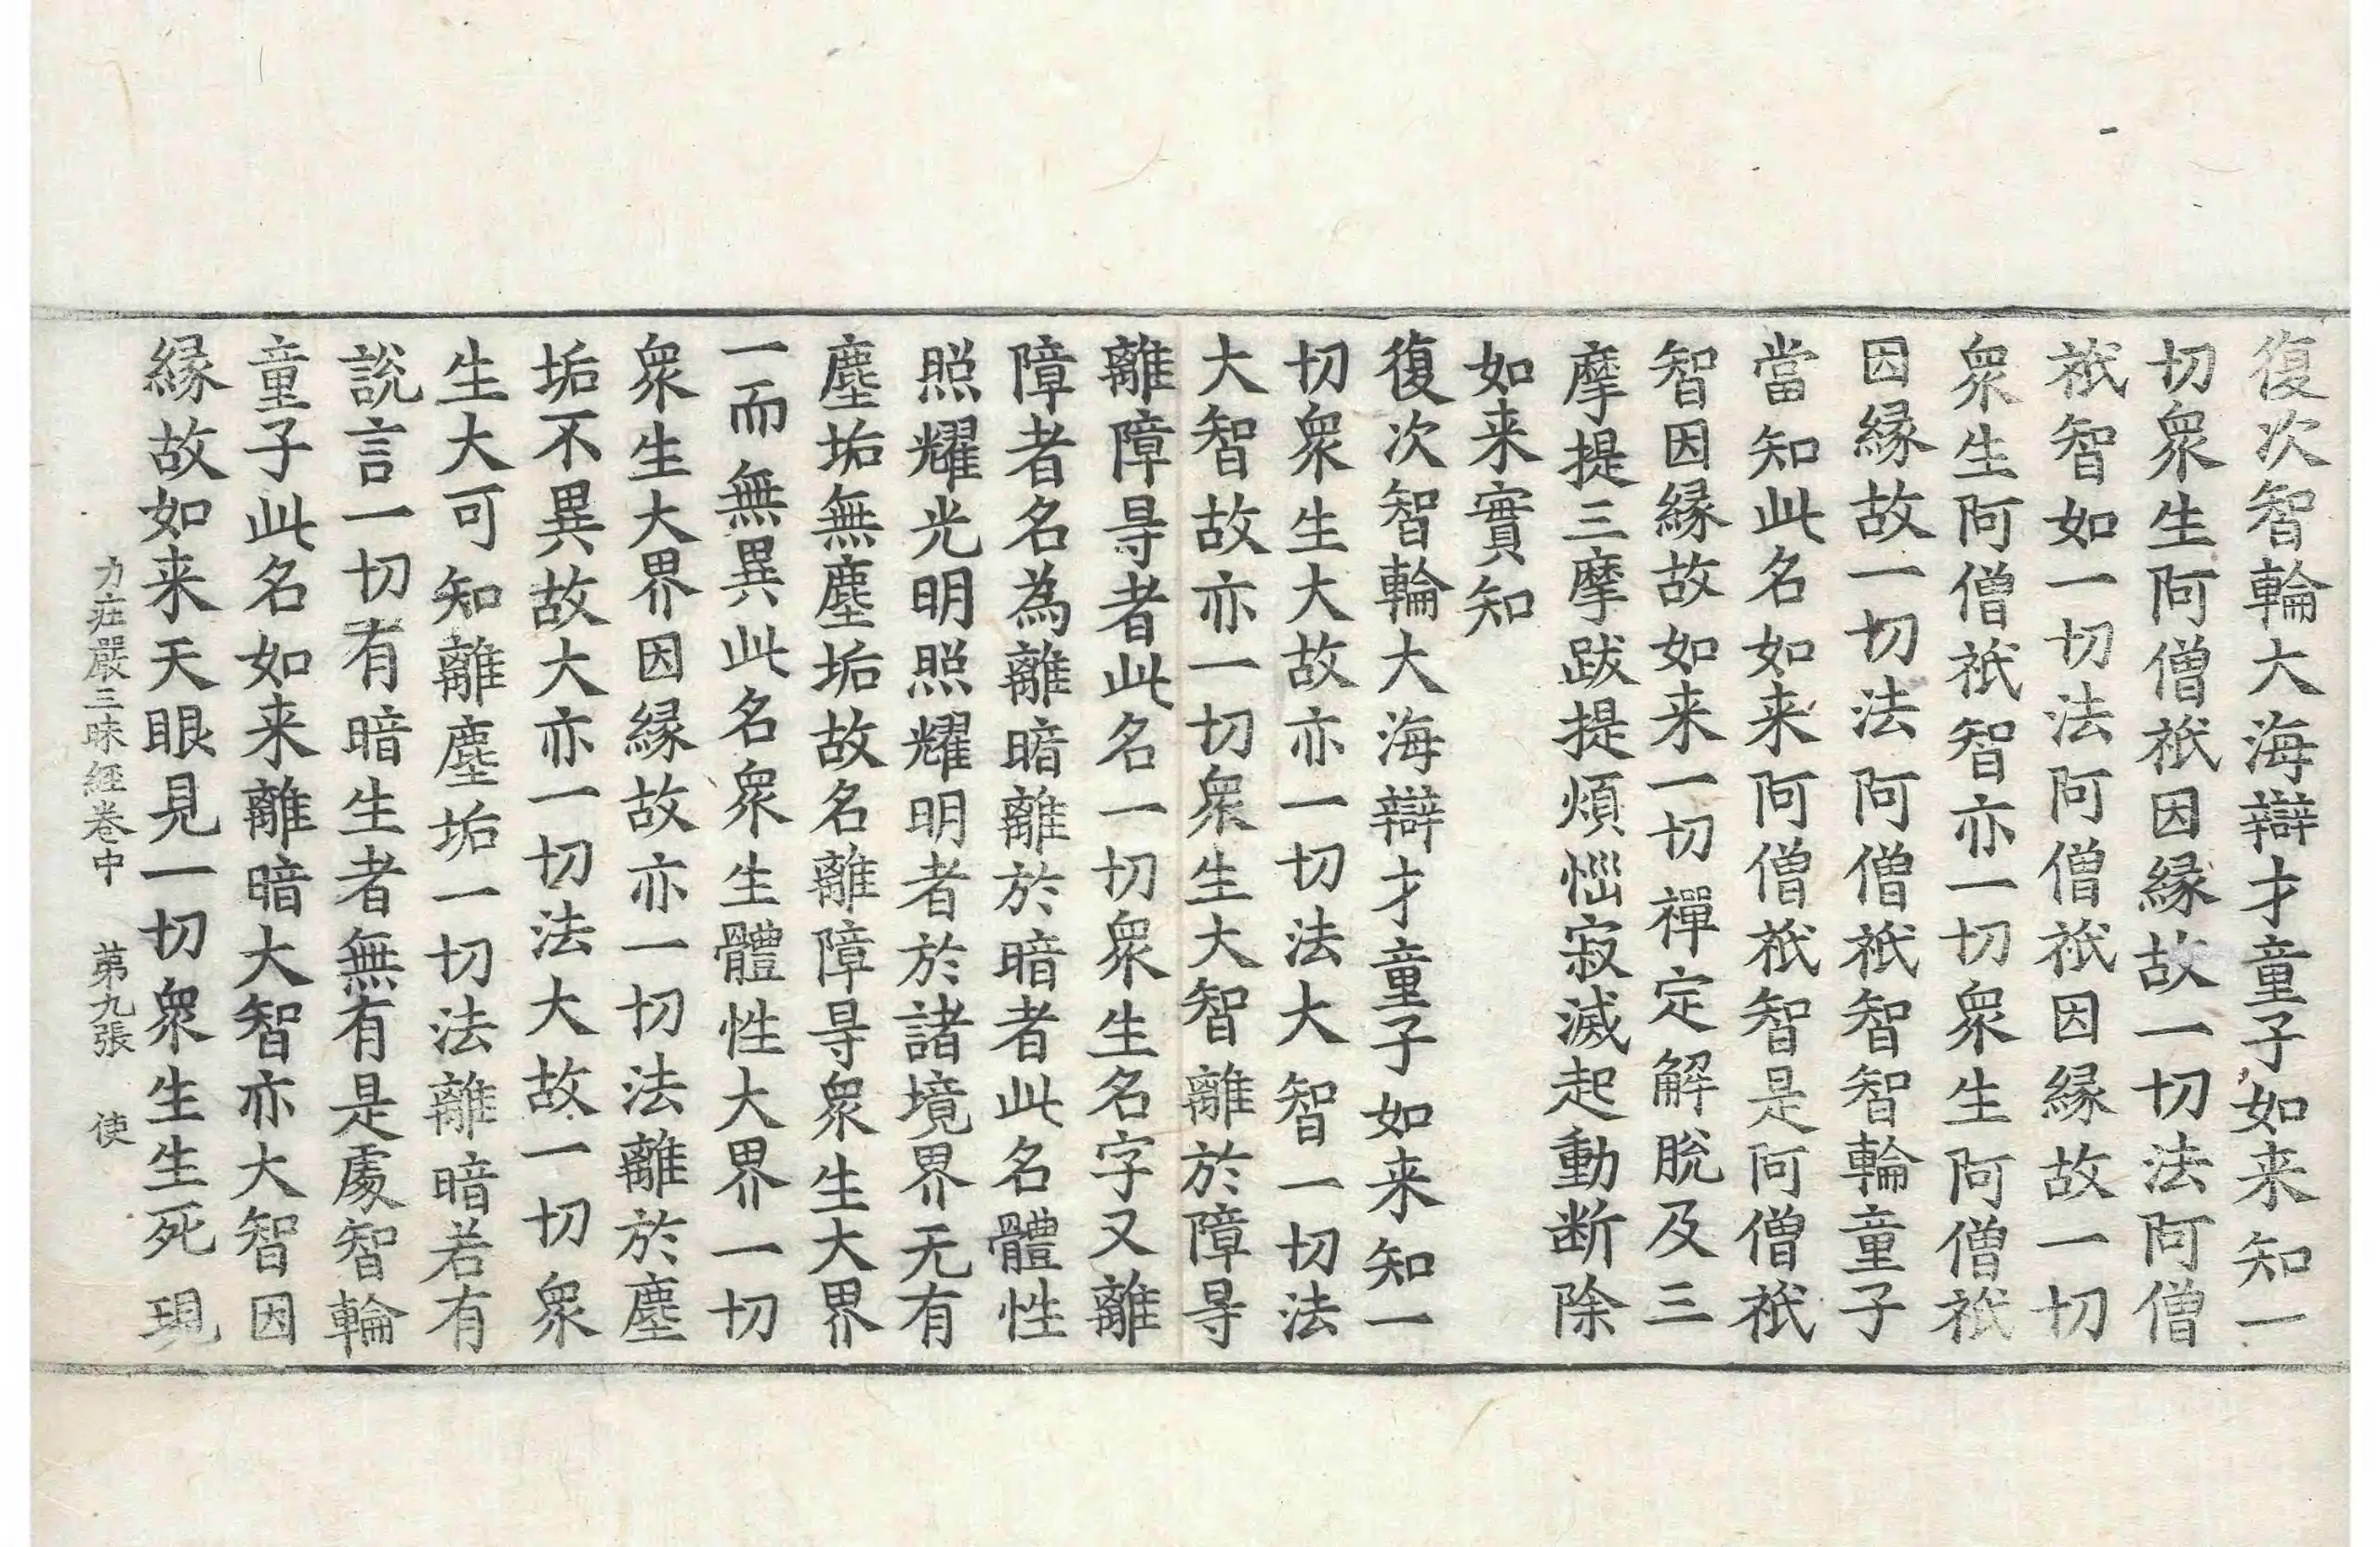 復次智輪大海辯才童子如来知一
切衆生阿僧祇因縁故一切法阿僧
祇智如一切法阿僧祇因縁故一切
衆生阿僧祇智亦一切衆生阿僧祇
因縁故一切法阿僧祇智智輪童子
當知此名如来阿僧祇智是阿僧祇
智因縁故如来一切禪定解脫及三
摩提三摩跋提煩惱寂滅起動断除
如来實知
復次智輪大海辯才童子如来知一
切衆生大故亦一切法大智一切法
大智故亦一切衆生大智離於障㝵
離障㝵者此名一切衆生名字又離
障者名為離暗離於暗者此名體性
照耀光明照耀明者於諸境界无有
塵垢無塵垢故名離障㝵衆生大界
一而無異此名衆生體性大界一切
衆生大界因縁故亦一切法離於塵
垢不異故大亦一切法大故一切衆
生大可知離塵垢一切法離暗若有
說言一切有暗生者無有是處智輪
童子此名如来離暗大智亦大智因
縁故如来天眼見一切衆生生死現
力莊嚴三昧經卷中 苐九張 使